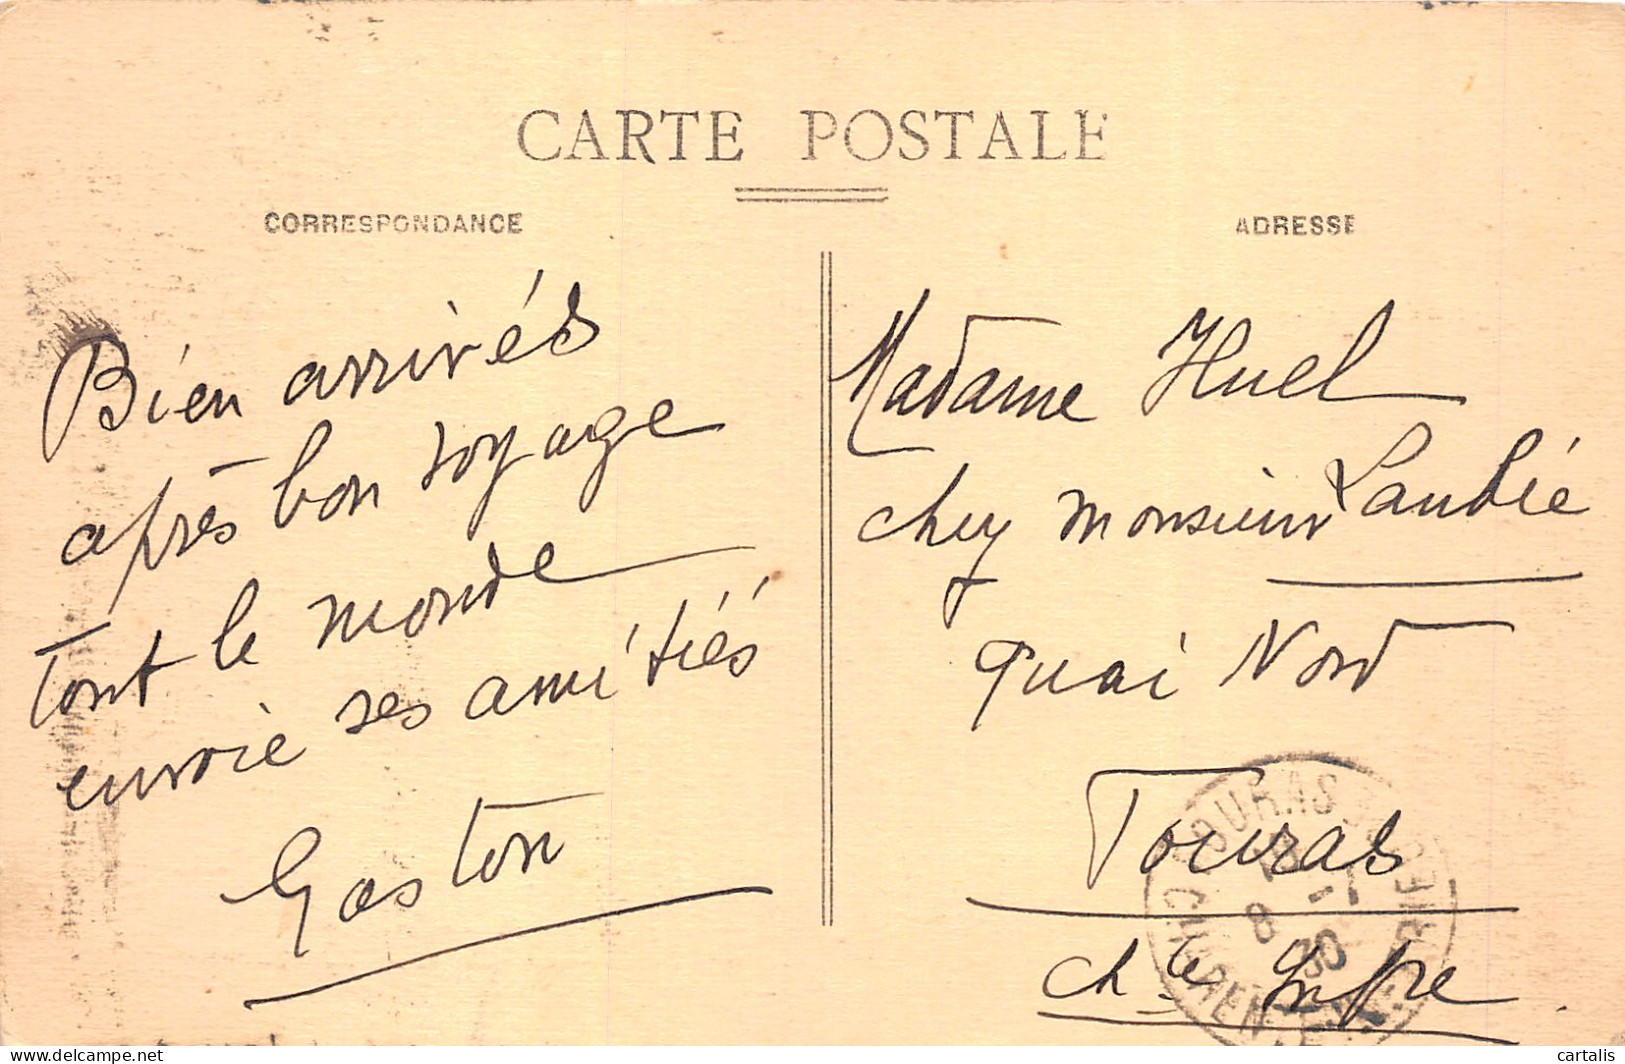 CARTE POSTALE
CORRESPONDANCE
ADRESSE
Bien arrivés
après bon voyage
Tout le monde
envoie ses amitiés
Gaston
Madame Huel
chez monsieur Landié
Quai Nord
Touras
chte Infre
8
30
© cartalis
www.delcampe.net